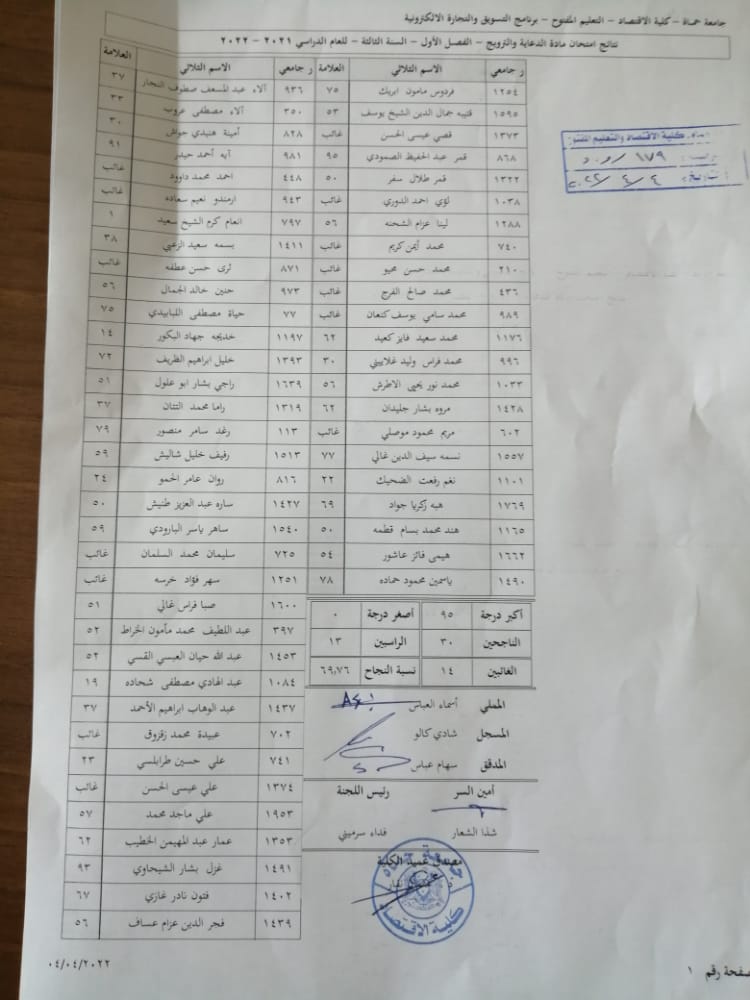 جامعة حماة - كلية الاقتصاد - التعليم المفتوح - برنامج التسويق والتجارة الالكترونية
نتائج امتحان مادة الدعاية والترويج - الفصل الأول - السنة الثالثة - للعام الدراسي ٢٠٢١ - ٢٠٢٢
ر جامعي الاسم الثلاثي العلامة
٩٣٦ آلاء عبد المسعف صطوف النجار ٣٧
٣٥٠ آلاء مصطفى عروب ٣٣
٨٢٨ أمينة هنيدي حواش ٣٠
٩٨١ آيه أحمد حيدر ٩١
٤٤٨ احمد محمد داوود غائب
٩٤٣ ارمندو نعيم سعاده غائب
٧٩٧ انعام كرم الشيخ سعيد ١
١٤١١ بسمه سعيد الزعبي ٣٨
٨٧١ ثرى حسن عطفه غائب
٩٧٣ حنين خالد الجمال ٥٦
٧٧ حياة مصطفى اللبابيدي ٧٥
١١٩٧ خديجه جهاد البكور ١٤
١٣٩٣ خليل ابراهيم الظريف ٧٢
١٦٣٩ راجي بشار ابو علول ٥١
١٣١٩ راما محمد التتان ٣٧
١١٣ رغد سامر منصور ٧٩
١٥١٣ رفيف خليل شاليش ٥٩
٨١٦ روان عامر الحمو ٢٤
١٤٢٧ ساره عبد العزيز طنيش ٥٠
١٥٤٠ ساهر ياسر البارودي ٥٩
٧٢٥ سليمان محمد السلمان غائب
١٢٥١ سهر فؤاد خرسه غائب
١٦٠٠ صبا فراس غالي ٥١
٣٩٧ عبد اللطيف محمد مأمون الخراط ٥٢
١٤٥٣ عبد الله حيان العبسي القسي ٥٢
١٠٨٤ عبد الهادي مصطفى شحاده ١٩
١٤٣٧ عبد الوهاب ابراهيم الأحمد ٣٧
٧٠٢ عبيدة محمد زقزوق غائب
٧٤١ علي حسين طرابلسي ٢٣
١٣٧٤ علي عيسى الحسن غائب
١٩٥٣ علي ماجد محمد ٥٧
١٣٥٣ عمار عبد المهيمن الخطيب ٦٢
١٤٩١ غزل بشار الشيحاوي ٩٣
١٤٠٢ فتون نادر غازي ٦٧
١٤٣٩ فجر الدين عزام عساف ٥٦
ر جامعي الاسم الثلاثي العلامة
١٢٥٤ فردوس مامون ابريك ٧٥
١٥٩٥ قتيبه جمال الدين الشيخ يوسف ٥٣
١٣٧٣ قصي عيسى الحسن غائب
٨٦٨ قمر عبد الحفيظ الصمودي ٩٥
١٣٢٢ قمر طلال سفر ٥٠
١٠٣٨ لؤي احمد الدوري غائب
١٢٨٨ لينا عزام الشحنه ٥٦
٧٤٠ محمد أيمن كريم غائب
٢١٠ محمد حسن محيو غائب
٤٣٦ محمد صالح الفرج غائب
٩٨٩ محمد سامي يوسف كنعان غائب
١١٧٦ محمد سعيد فايز كعيد ٦٢
٩٩٦ محمد فراس وليد غلاييني ٣٠
١٠٣٣ محمد نور يحيى الاطرش ٥٦
١٤٢٨ مروه بشار جليدان ٦٢
٦٠٢ مريم محمود موصلي غائب
١٥٥٧ نسمه سيف الدين غالي ٧٧
١١٠١ نغم رفعت الضحيك ٢٢
١٧٦٩ هبه زكريا جواد ٦٩
١١٦٥ هند محمد بسام قطمه ٥٠
١٦٦٢ هيمى فائز عاشور ٥٤
١٤٩٠ ياسمين محمود حماده ٧٨
أكبر درجة ٩٥ أصغر درجة ٠
الناجحين ٣٠ الراسبين ١٣
الغائبين ١٤ نسبة النجاح ٦٩,٧٦
المملي أسماء العباس
المسجل شادي كالو
المدقق سهام عباس
أمين السر رئيس اللجنة
شذا الشعار فداء سرميني
مصدق عميد الكلية
كلية الاقتصاد
كلية الاقتصاد والتعليم المفتوح
١٧٩
٢٠٢٢/٤/٤
صفحة رقم ١
٠٤/٠٤/٢٠٢٢